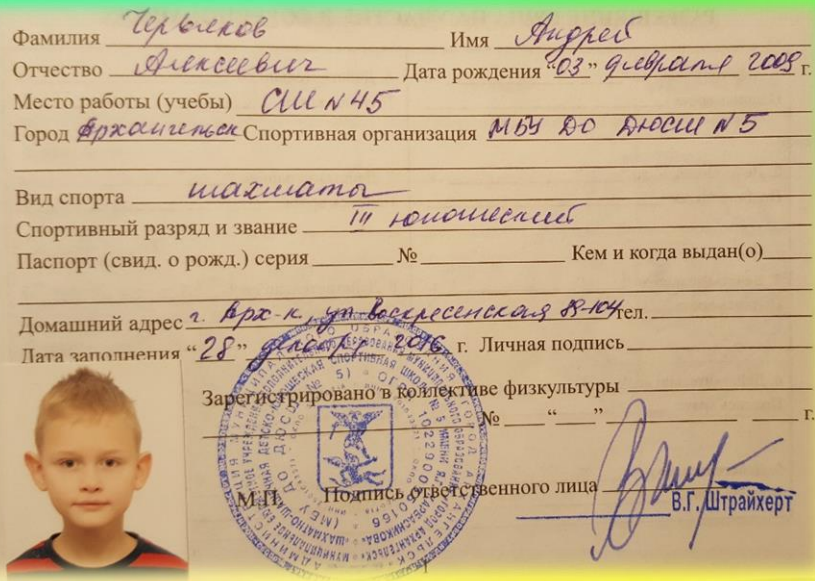 Фамилия Червяков Имя Андрей
Отчество Алексеевич Дата рождения “03” февраля 2009 г.
Место работы (учебы) СШ №45
Город Архангельск Спортивная организация МБУ ДО ДЮСШ №5
Вид спорта шахматы
Спортивный разряд и звание III юношеский
Паспорт (свид. о рожд.) серия № Кем и когда выдан(о)
Домашний адрес г. Арх-к, ул Воскресенская 89-104 тел.
Дата заполнения “28” 2016 г. Личная подпись
Зарегистрировано в коллективе физкультуры
№ “ ” г.
М.П. Подпись ответственного лица
В.Г. Штрайхерт